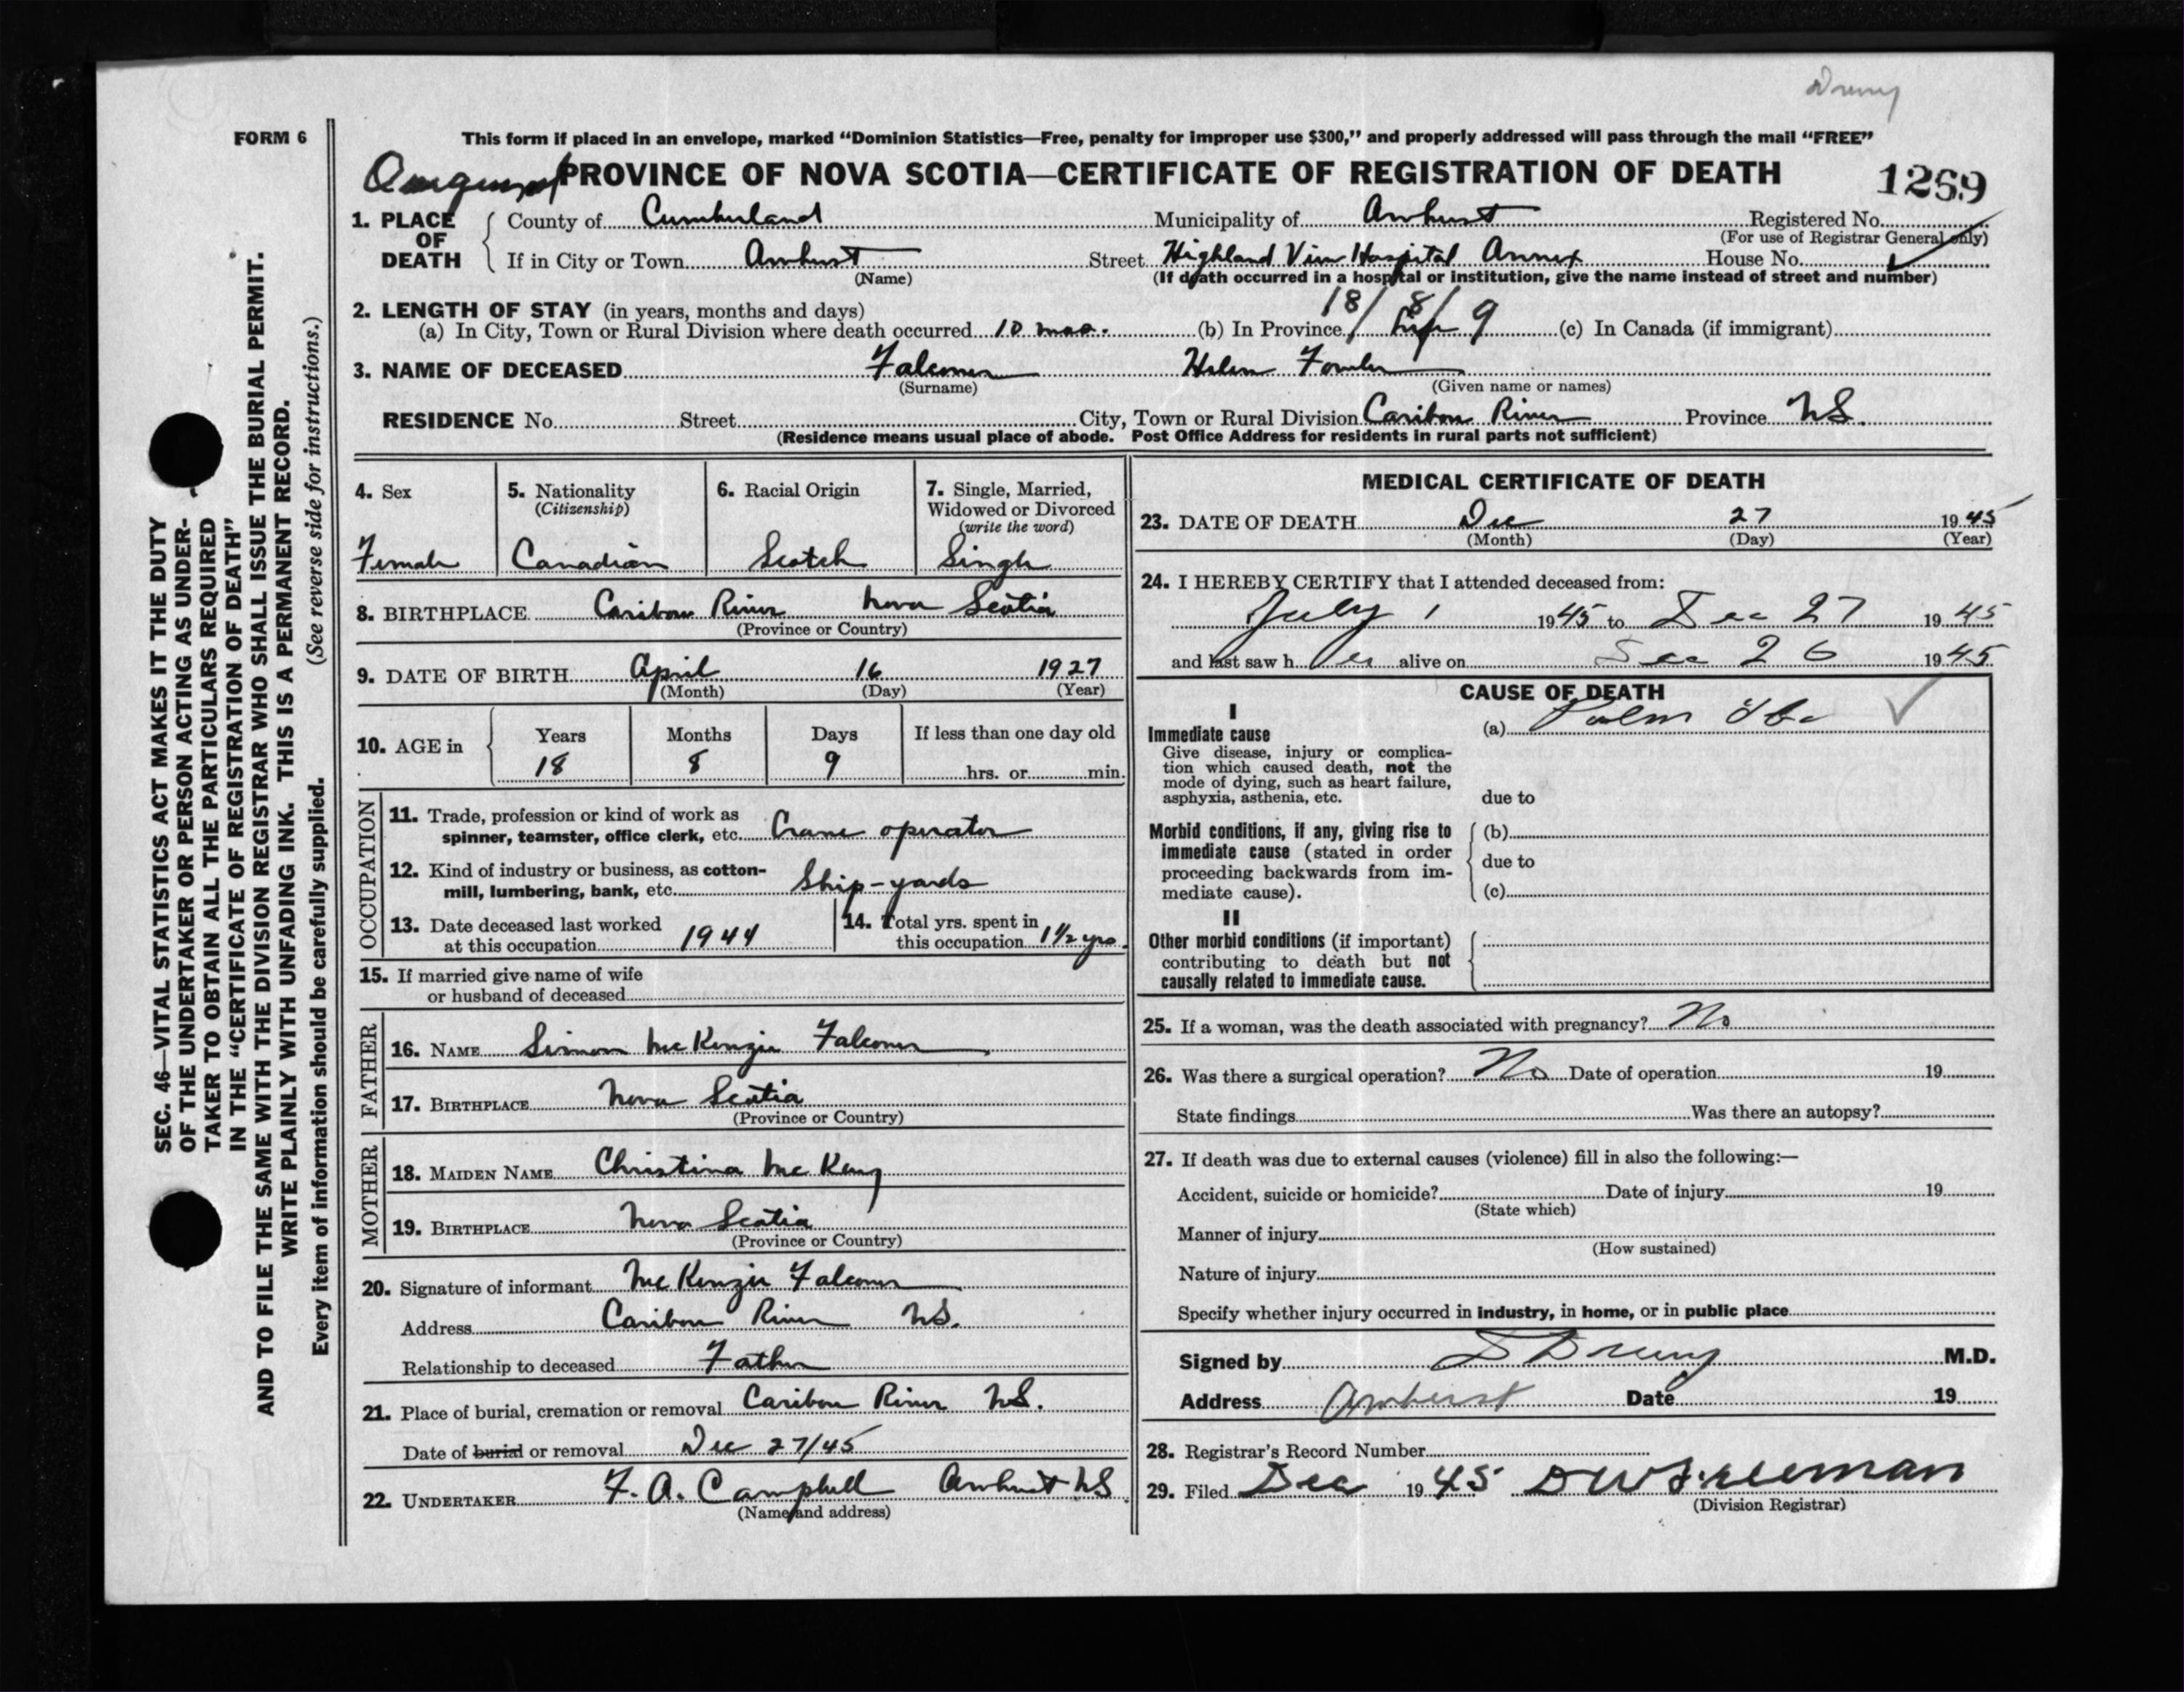 Drury
FORM 6
This form if placed in an envelope, marked “Dominion Statistics—Free, penalty for improper use $300,” and properly addressed will pass through the mail “FREE”
PROVINCE OF NOVA SCOTIA—CERTIFICATE OF REGISTRATION OF DEATH
1269
1. PLACE OF DEATH
County of Cumberland Municipality of Amherst Registered No.
(For use of Registrar General only)
If in City or Town Amherst Street Highland View Hospital Annex House No.
(Name) (If death occurred in a hospital or institution, give the name instead of street and number)
2. LENGTH OF STAY (in years, months and days) 18/ 8/ 9
(a) In City, Town or Rural Division where death occurred 10 mos. (b) In Province Life (c) In Canada (if immigrant)
3. NAME OF DECEASED Falconer Helen Fowler
(Surname) (Given name or names)
RESIDENCE No. Street City, Town or Rural Division Caribou River Province NS.
(Residence means usual place of abode. Post Office Address for residents in rural parts not sufficient)
4. Sex
Female
5. Nationality
(Citizenship)
Canadian
6. Racial Origin
Scotch
7. Single, Married,
Widowed or Divorced
(write the word)
Single
8. BIRTHPLACE Caribou River Nova Scotia
(Province or Country)
9. DATE OF BIRTH April 16 1927
(Month) (Day) (Year)
10. AGE in Years Months Days If less than one day old
18 8 9 hrs. or min.
OCCUPATION
11. Trade, profession or kind of work as
spinner, teamster, office clerk, etc. Crane operator
12. Kind of industry or business, as cotton-
mill, lumbering, bank, etc. Ship-yards
13. Date deceased last worked
at this occupation 1944
14. Total yrs. spent in
this occupation 1 1/2 yrs.
15. If married give name of wife
or husband of deceased
FATHER
16. NAME Simon McKenzie Falconer
17. BIRTHPLACE Nova Scotia
(Province or Country)
MOTHER
18. MAIDEN NAME Christina Mc
19. BIRTHPLACE Nova Scotia
(Province or Country)
20. Signature of informant McKenzie Falconer
Address Caribou River NS.
Relationship to deceased Father
21. Place of burial, cremation or removal Caribou River NS.
Date of burial or removal Dec 27/45
22. UNDERTAKER F. A. Campbell Amherst NS
(Name and address)
MEDICAL CERTIFICATE OF DEATH
23. DATE OF DEATH Dec 27 1945
(Month) (Day) (Year)
24. I HEREBY CERTIFY that I attended deceased from:
July 1 1945 to Dec 27 1945
and last saw h er alive on Dec 26 1945
CAUSE OF DEATH
I
Immediate cause
Give disease, injury or complica-
tion which caused death, not the
mode of dying, such as heart failure,
asphyxia, asthenia, etc.
(a) Pulm Tbc
due to
Morbid conditions, if any, giving rise to
immediate cause (stated in order
proceeding backwards from im-
mediate cause).
(b)
due to
(c)
II
Other morbid conditions (if important)
contributing to death but not
causally related to immediate cause.
25. If a woman, was the death associated with pregnancy? No
26. Was there a surgical operation? No Date of operation 19
State findings Was there an autopsy?
27. If death was due to external causes (violence) fill in also the following:—
Accident, suicide or homicide? Date of injury 19
(State which)
Manner of injury
(How sustained)
Nature of injury
Specify whether injury occurred in industry, in home, or in public place
Signed by D Drury M.D.
Address Amherst Date 19
28. Registrar's Record Number
29. Filed Dec 1945 D W Freeman
(Division Registrar)
SEC. 46—VITAL STATISTICS ACT MAKES IT THE DUTY
OF THE UNDERTAKER OR PERSON ACTING AS UNDER-
TAKER TO OBTAIN ALL THE PARTICULARS REQUIRED
IN THE “CERTIFICATE OF REGISTRATION OF DEATH”
AND TO FILE THE SAME WITH THE DIVISION REGISTRAR WHO SHALL ISSUE THE BURIAL PERMIT.
WRITE PLAINLY WITH UNFADING INK. THIS IS A PERMANENT RECORD.
Every item of information should be carefully supplied. (See reverse side for instructions.)